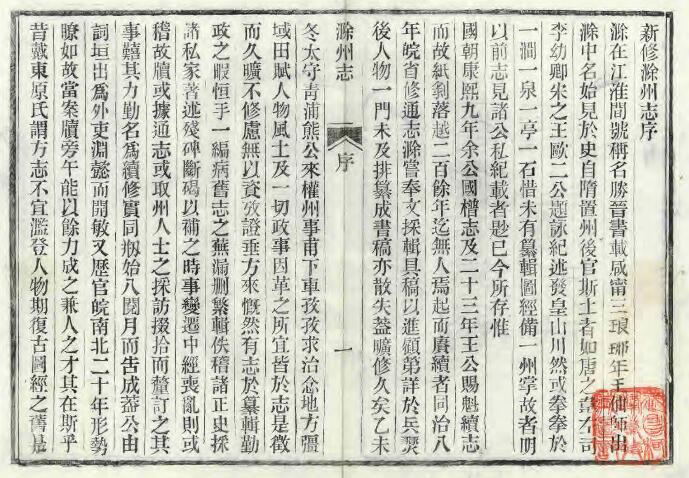 新修滁州志序
滁在江淮間號稱名勝晉書載咸甯三年琅琊王伷師出
滁中名始見於史自隋置州後官斯土者如唐之韋左司
李幼卿宋之王歐二公題詠紀述發皇山川然或拳拳於
一澗一泉一亭一石惜未有纂輯圖經備一州掌故者明
以前志見諸公私紀載者尠已今所存惟
國朝康熙九年余公國𣚴志及二十三年王公賜魁續志
而故紙剝落越二百餘年迄無人焉起而賡續者同治八
年皖省修通志滁嘗奉文採輯具稿以進顧第詳於兵燹
後人物一門未及排纂成書稿亦散失蓋曠修久矣乙未
滁州志
序
一
冬太守青浦熊公來權州事甫下車孜孜求治念地方疆
域田賦人物風土及一切政事因革之所宜皆於志是徵
而久曠不修慮無以資攷證垂方來慨然有志於纂輯勤
政之暇恒手一編病舊志之蕪漏刪繁輯佚稽諸正史採
諸私家著述殘碑斷碣以補之時事變遷中經喪亂則或
稽故牘或據通志或取州人士之採訪掇拾而釐訂之其
事囏其力勤名爲續修實同刱始八閱月而告成蓋公由
詞垣出爲外吏淵懿而開敏又歷官皖南北二十年形勢
瞭如故當案牘旁午能以餘力成之兼人之才其在斯乎
昔戴東原氏謂方志不宜濫登人物期復古圖經之舊是